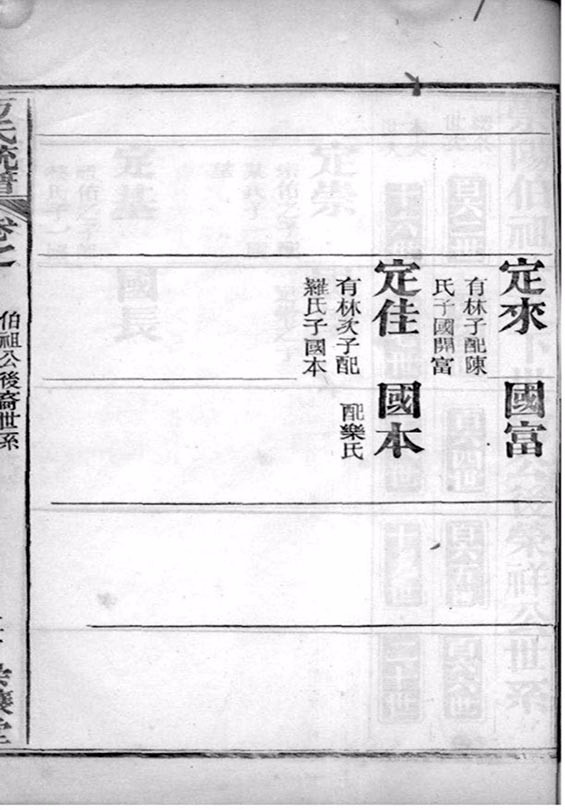 定來
有林子配陳
氏子國開富
國富
定佳
有林次子配
羅氏子國本
國本
配樂氏
氏統譜
卷之
伯祖公後裔世系